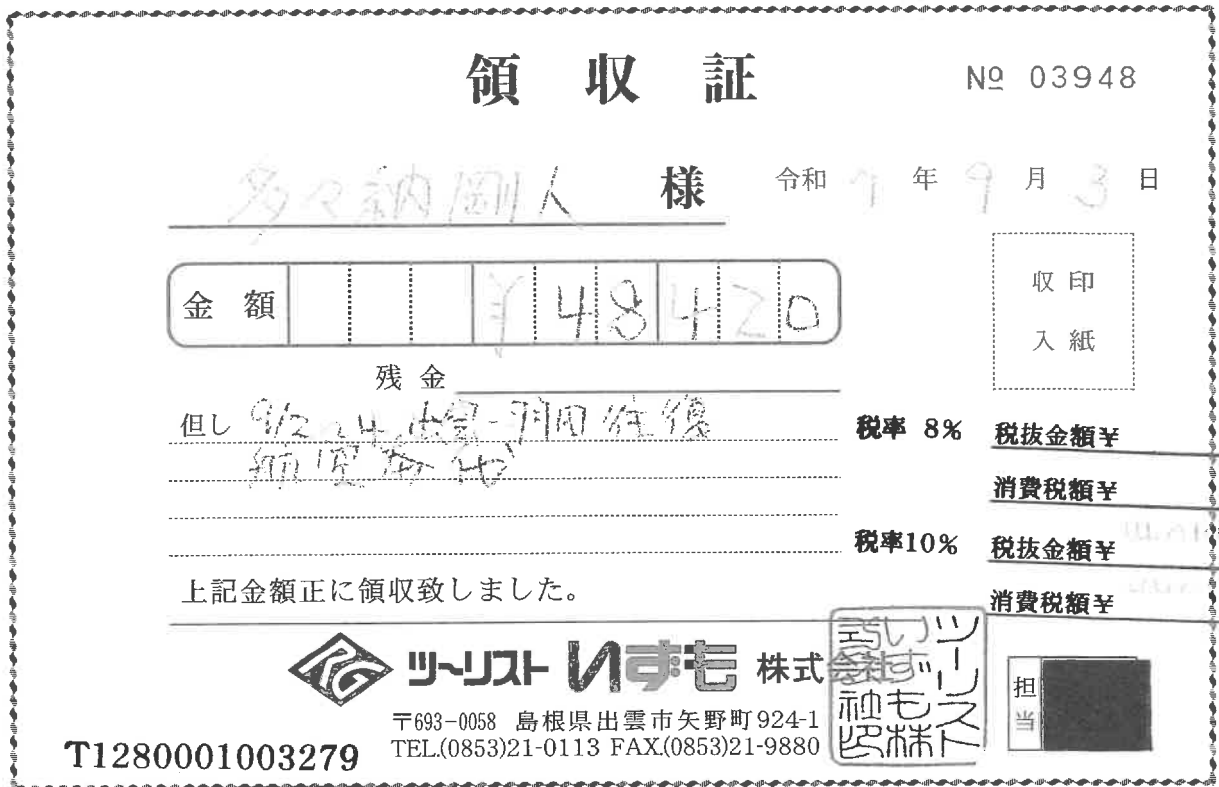 領収証
№ 03948
多々納剛人 様
令和 7 年 9 月 3 日
金額 ¥48420
収入印紙
残金
但し 9/2-4 出雲-羽田往復
航空券代
税率 8% 税抜金額¥
消費税額¥
税率10% 税抜金額¥
消費税額¥
上記金額正に領収致しました。
RG ツーリスト いずも 株式会社
ツーリストいずも株式会社印
担当
〒693-0058 島根県出雲市矢野町924-1
TEL.(0853)21-0113 FAX.(0853)21-9880
T1280001003279